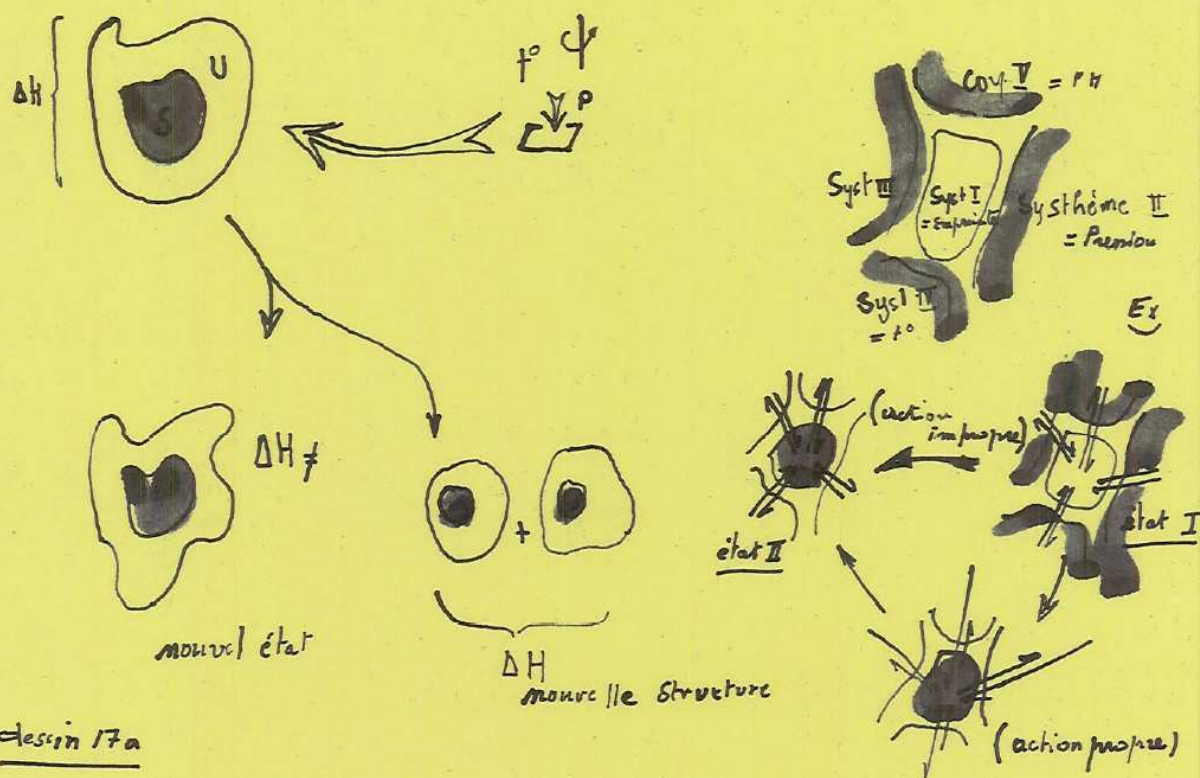 ΔH
U
S
t°
P
Coy V = PH
Syst III
Syst I
= Empreinte
Systhème II
= Pression
Syst IV
= t°
Ex
ΔH ≠
nouvel état
+
ΔH
nouvelle Structure
(action
impropre)
état II
état I
(action propre)
dessin 17a